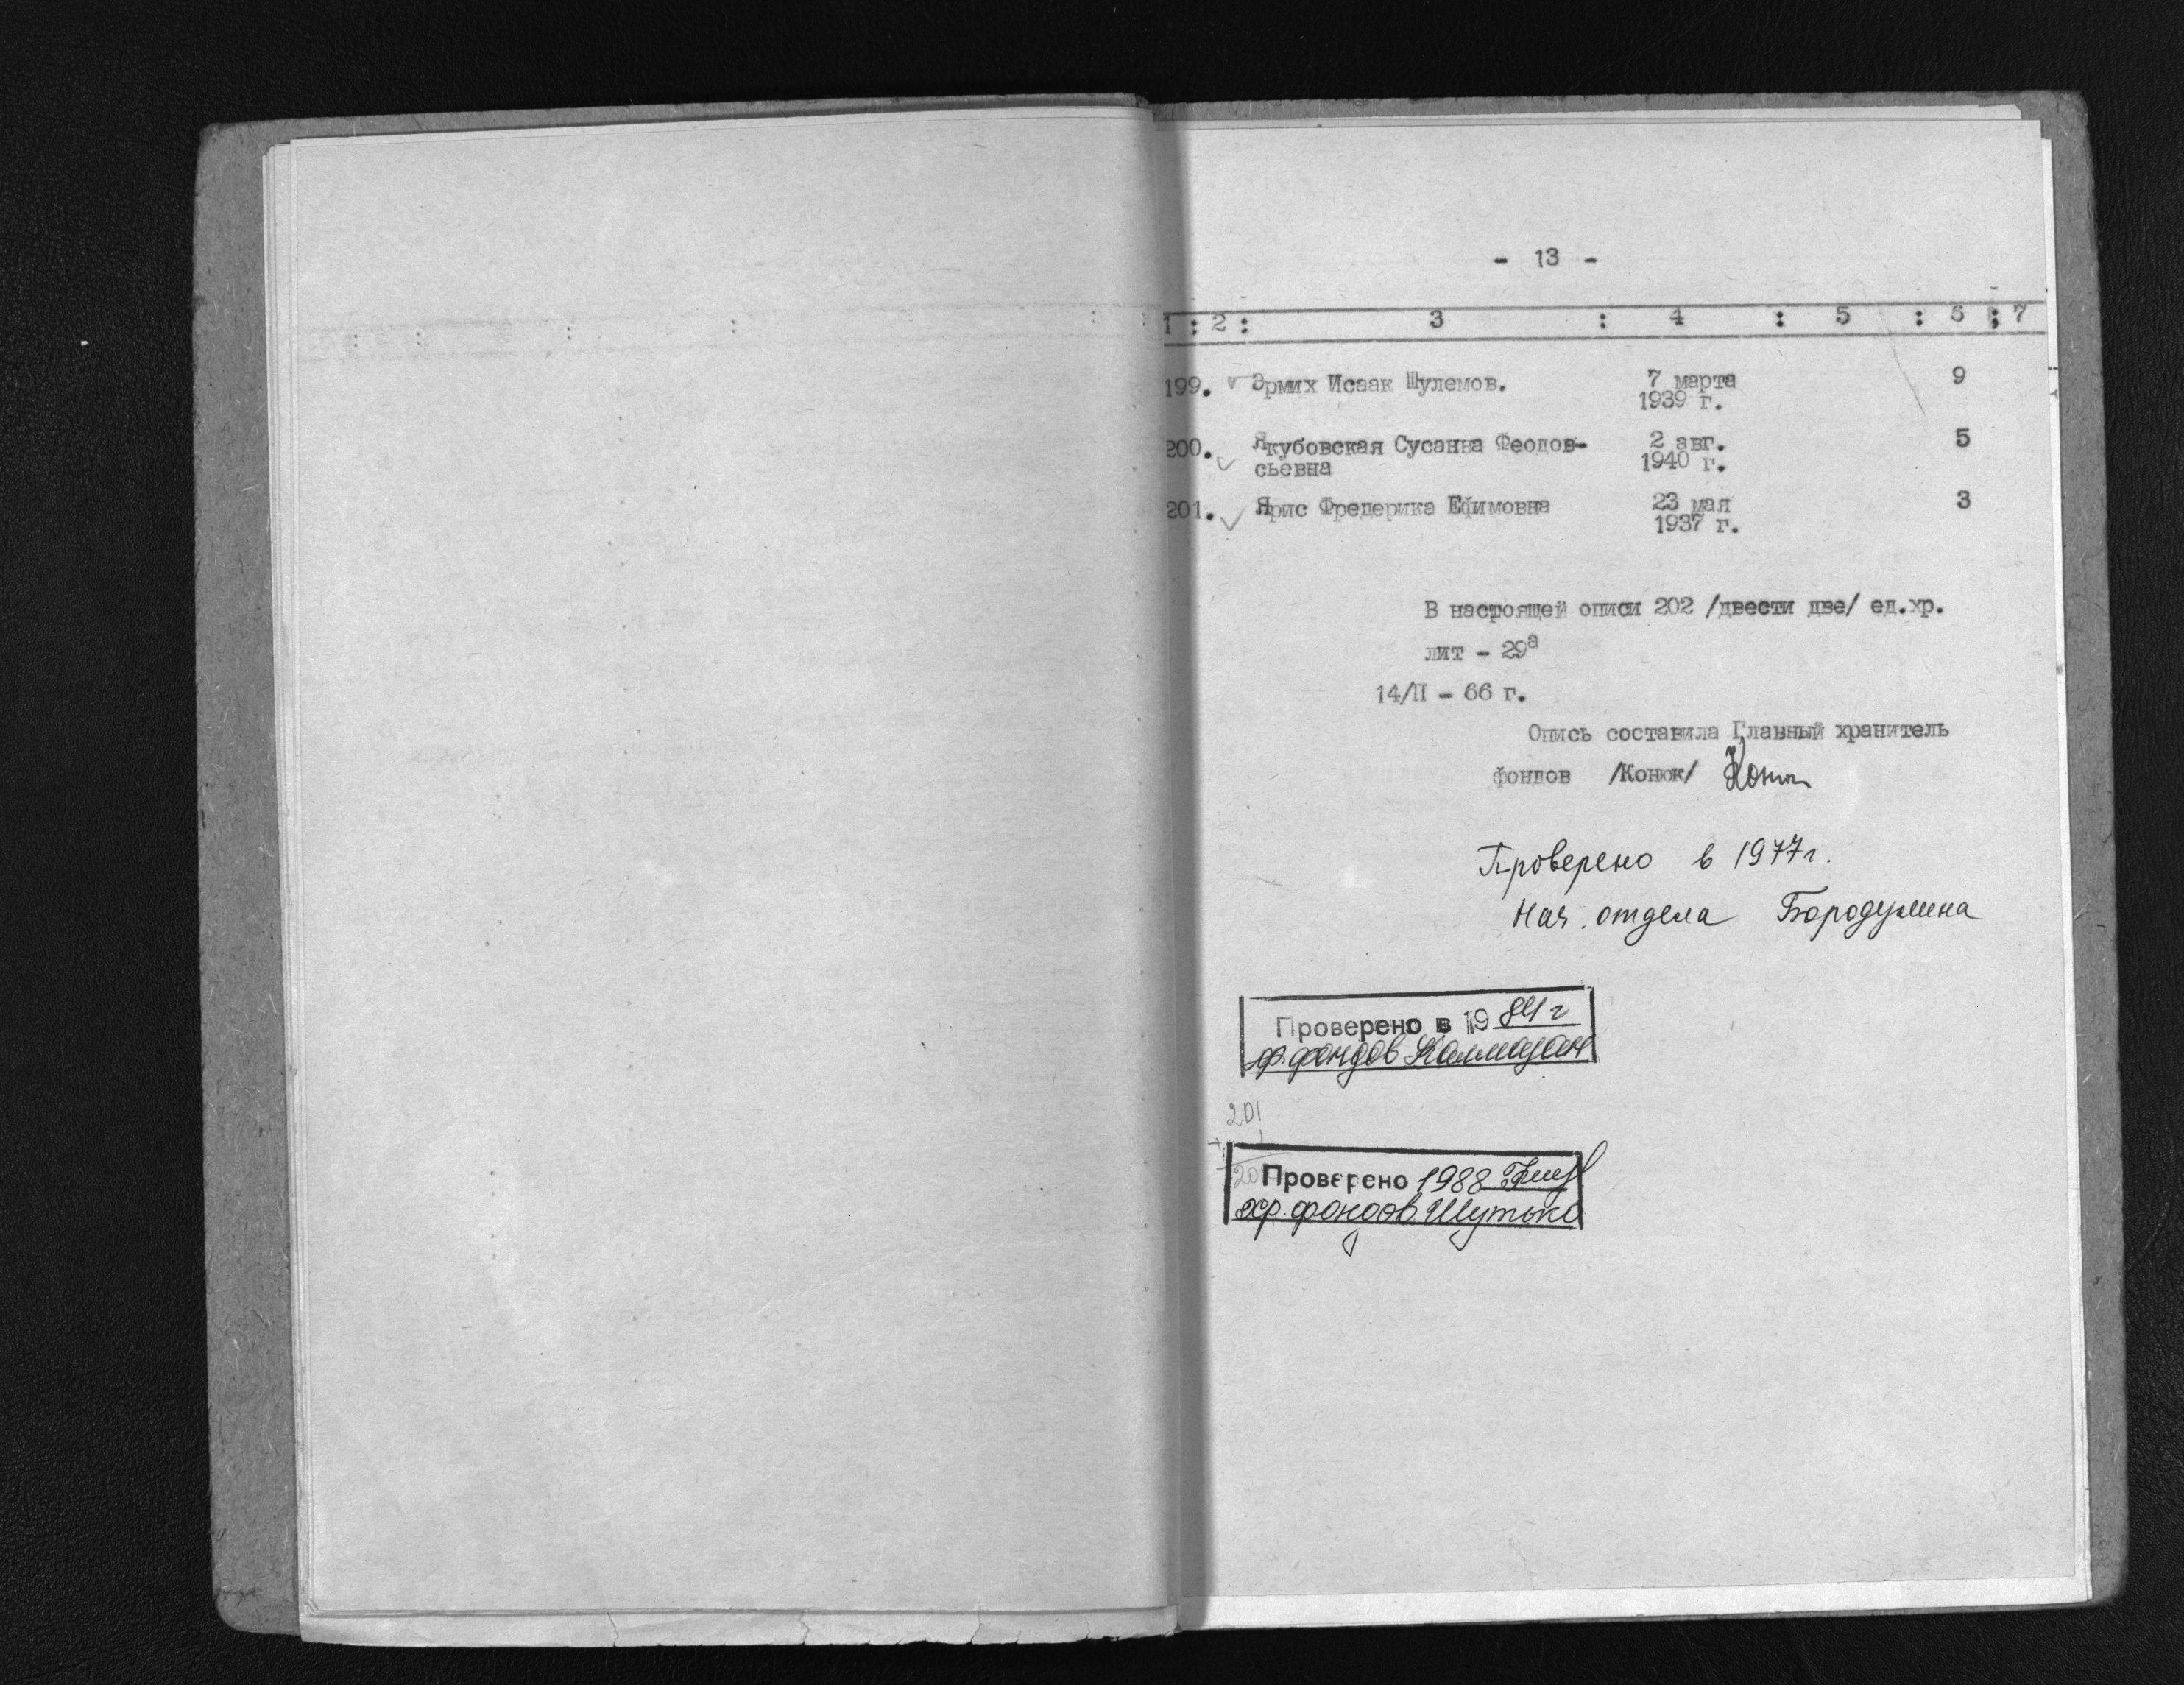 - 13 -
1 : 2 : 3 : 4 : 5 : 6 : 7
199. Эрмих Исаак Шулемов. 7 марта 9
1939 г.
200. Якубовская Сусанна Феодов- 2 авг. 5
сьевна 1940 г.
201. Ярис Фредерика Ефимовна 23 мая 3
1937 г.
В настоящей описи 202 /двести две/ ед.хр.
лит - 29а
14/II - 66 г.
Опись составила Главный хранитель
фондов /Конюк/
Проверено в 1977г.
Нач. отдела Бородулина
Проверено в 1984г
хр. фондов
201
Проверено 1988
хр. фондов Шутько